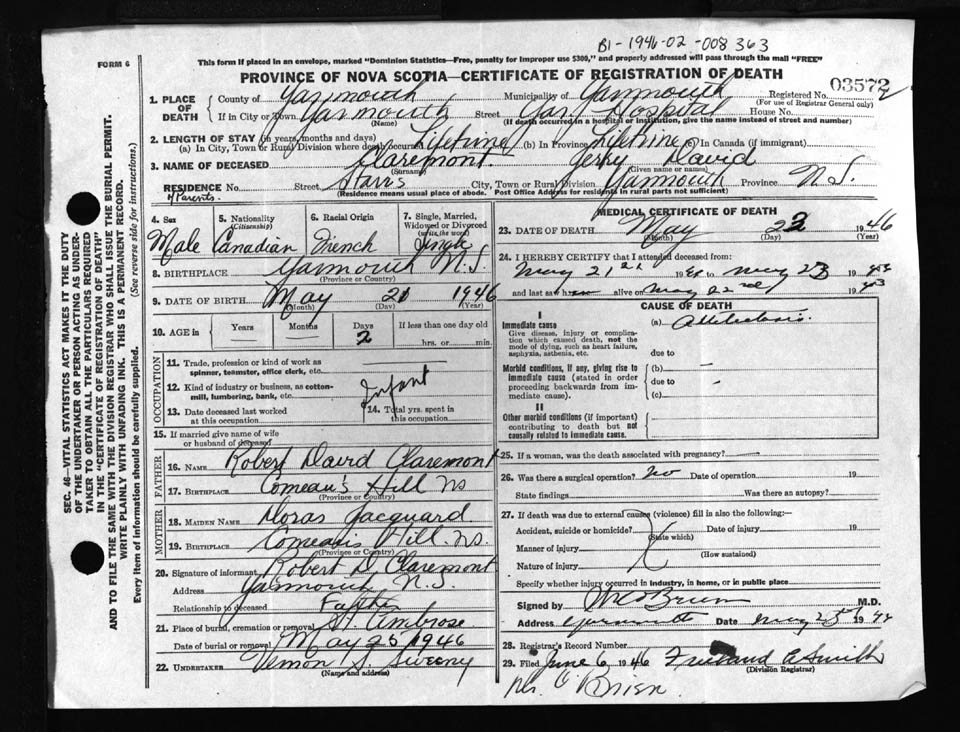 B1-1946-02-008363
FORM 6
This form if placed in an envelope, marked "Dominion Statistics—Free, penalty for improper use $300," and properly addressed will pass through the mail "FREE"
PROVINCE OF NOVA SCOTIA—CERTIFICATE OF REGISTRATION OF DEATH
03572
1. PLACE OF DEATH
County of Yarmouth Municipality of Yarmouth Registered No.
(For use of Registrar General only)
If in City or Town Yarmouth Street Yar. Hospital House No.
(Name) (If death occurred in a hospital or institution, give the name instead of street and number)
2. LENGTH OF STAY (in years, months and days)
(a) In City, Town or Rural Division where death occurred Lifetime (b) In Province Lifetime (c) In Canada (if immigrant)
3. NAME OF DECEASED Claremont. Jerry David
(Surname) (Given name or names)
RESIDENCE No. Street Starrs City, Town or Rural Division Yarmouth Province N.S.
of Parents. (Residence means usual place of abode. Post Office Address for residents in rural parts not sufficient)
4. Sex 5. Nationality (Citizenship) 6. Racial Origin 7. Single, Married, Widowed or Divorced (write the word)
Male Canadian French Single
8. BIRTHPLACE Yarmouth N.S.
(Province or Country)
9. DATE OF BIRTH May 21 1946
(Month) (Day) (Year)
10. AGE in Years Months Days If less than one day old
2 hrs. or min.
OCCUPATION
11. Trade, profession or kind of work as spinner, teamster, office clerk, etc.
12. Kind of industry or business, as cotton-mill, lumbering, bank, etc.
Infant
13. Date deceased last worked at this occupation
14. Total yrs. spent in this occupation
15. If married give name of wife or husband of deceased
FATHER
16. NAME Robert David Claremont
17. BIRTHPLACE Comeau's Hill NS
(Province or Country)
MOTHER
18. MAIDEN NAME Doras Jacquard
19. BIRTHPLACE Comeau's Hill. N.S.
(Province or Country)
20. Signature of informant Robert D. Claremont
Address Yarmouth N.S.
Relationship to deceased Father
21. Place of burial, cremation or removal St. Ambrose
Date of burial or removal May 25 1946
22. UNDERTAKER Vernon S. Sweeny
(Name and address)
MEDICAL CERTIFICATE OF DEATH
23. DATE OF DEATH May 1946
(Month) (Day) (Year)
24. I HEREBY CERTIFY that I attended deceased from:
May 21st 19 to May 19
and last saw alive on May 22nd 19
CAUSE OF DEATH
I
Immediate cause (a)
Give disease, injury or complication which caused death, not the mode of dying, such as heart failure, asphyxia, asthenia, etc.
due to
Morbid conditions, if any, giving rise to immediate cause (stated in order proceeding backwards from immediate cause).
(b) –
due to –
(c)
II
Other morbid conditions (if important) contributing to death but not causally related to immediate cause.
25. If a woman, was the death associated with pregnancy? —
26. Was there a surgical operation? No Date of operation 19
State findings Was there an autopsy?
27. If death was due to external causes (violence) fill in also the following:—
Accident, suicide or homicide? Date of injury 19
(State which)
Manner of injury
(How sustained)
Nature of injury
Specify whether injury occurred in industry, in home, or in public place
Signed by O'Brien M.D.
Address Yarmouth Date May 19
28. Registrar's Record Number
29. Filed June 6, 1946 Smith
(Division Registrar)
O'Brien.
SEC. 46—VITAL STATISTICS ACT MAKES IT THE DUTY
OF THE UNDERTAKER OR PERSON ACTING AS UNDER-
TAKER TO OBTAIN ALL THE PARTICULARS REQUIRED
IN THE "CERTIFICATE OF REGISTRATION OF DEATH"
AND TO FILE THE SAME WITH THE DIVISION REGISTRAR WHO SHALL ISSUE THE BURIAL PERMIT.
WRITE PLAINLY WITH UNFADING INK. THIS IS A PERMANENT RECORD.
Every item of information should be carefully supplied. (See reverse side for instructions.)